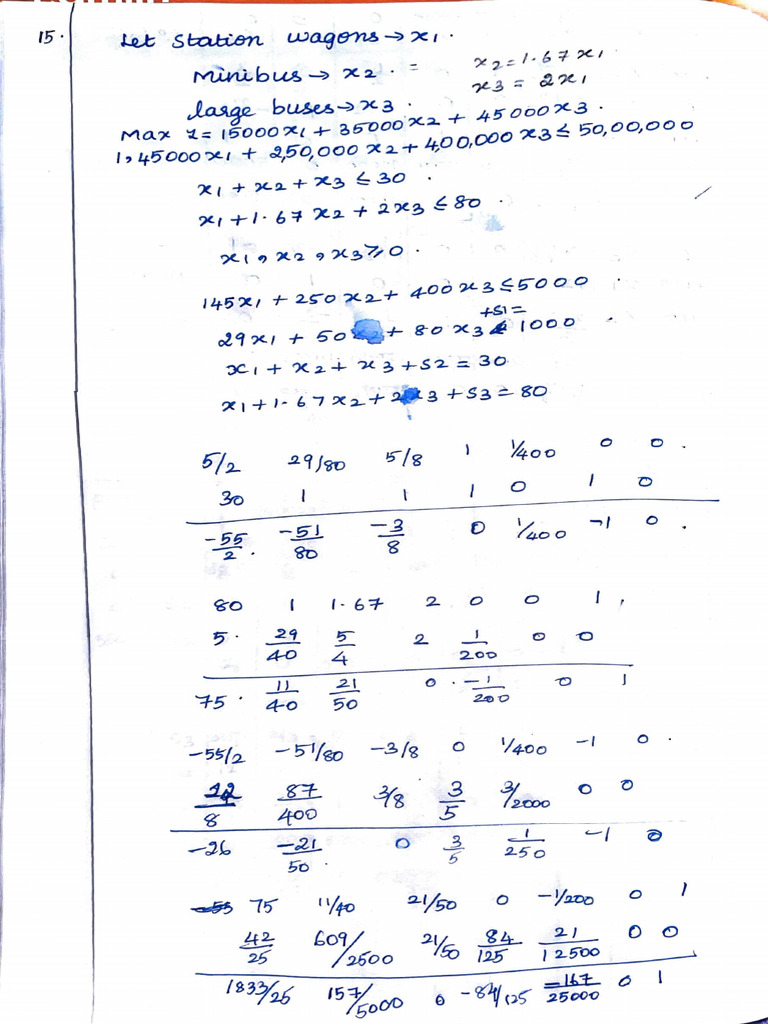 15. Let Station wagons → x1.
Minibus → x2. = x2 = 1.67x1
x3 = 2x1
large buses → x3.
Max z = 15000x1 + 35000x2 + 45000x3.
1,45000x1 + 2,50,000x2 + 400,000x3 ≤ 50,00,000
x1 + x2 + x3 ≤ 30.
x1 + 1.67x2 + 2x3 ≤ 80.
x1, x2, x3 ≥ 0.
145x1 + 250x2 + 400x3 ≤ 5000.
29x1 + 50x2 + 80x3 +S1= 1000.
x1 + x2 + x3 + S2 = 30
x1 + 1.67x2 + 2x3 + S3 = 80
5/2 29/80 5/8 1 1/400 0 0.
30 1 1 1 0 1 0
-55/2. -51/80 -3/8 0 1/400 -1 0.
80 1 1.67 2 0 0 1,
5. 29/40 5/4 2 1/200 0 0
75. 11/40 21/50 0. -1/200 0 1
-55/2 -51/80 -3/8 0 1/400 -1 0.
/8 87/400 3/8 3/5 3/2000 0 0
-26 -21/50. 0 3/5 1/250 -1 0
75 11/40 21/50 0 -1/200 0 1
42/25 609/2500 21/50 84/125 21/12500 0 0
1833/25 157/5000 0 -84/125 -167/25000 0 1